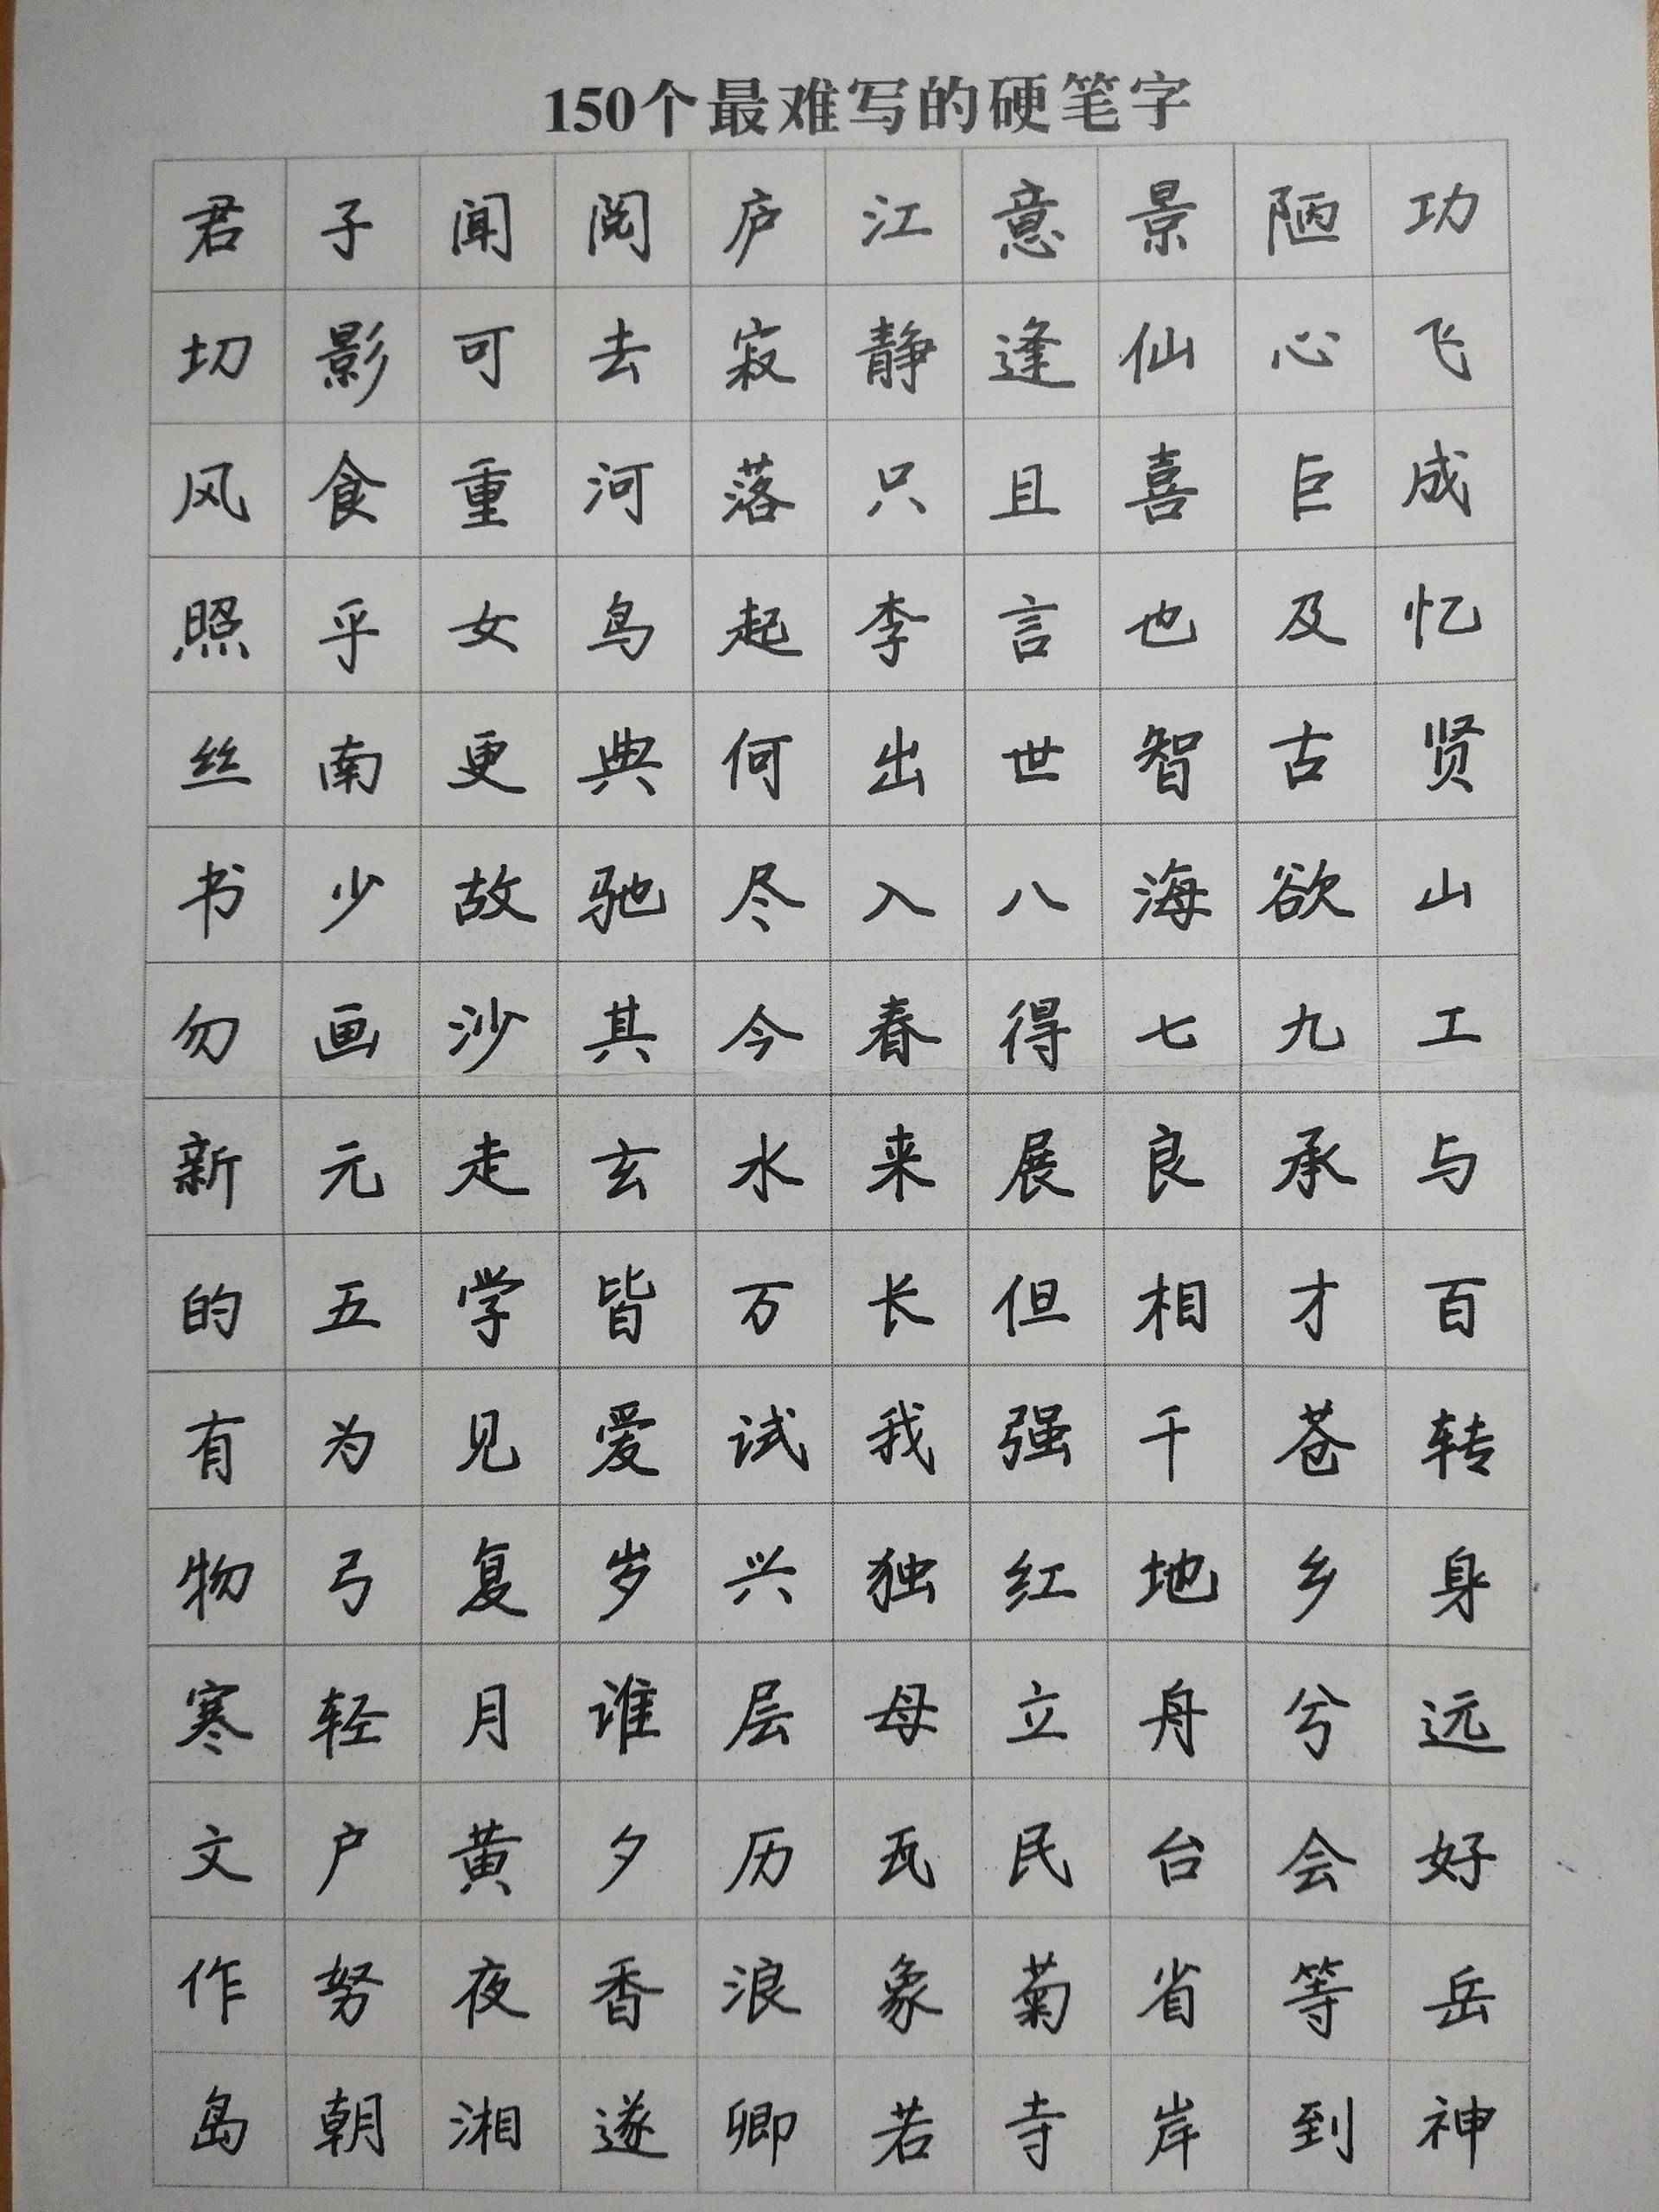 150个最难写的硬笔字
君子闻阅庐江意景陋功
切影可去寂静逢仙心飞
风食重河落只且喜巨成
照乎女鸟起李言也及忆
丝南更典何出世智古贤
书少故驰尽入八海欲山
勿画沙其今春得七九工
新元走玄水来展良承与
的五学皆万长但相才百
有为见爱试我强千苍转
物弓复岁兴独红地乡身
寒轻月谁层母立舟兮远
文户黄夕历瓦民台会好
作努夜香浪象菊省等岳
岛朝湘遂卿若寺岸到神